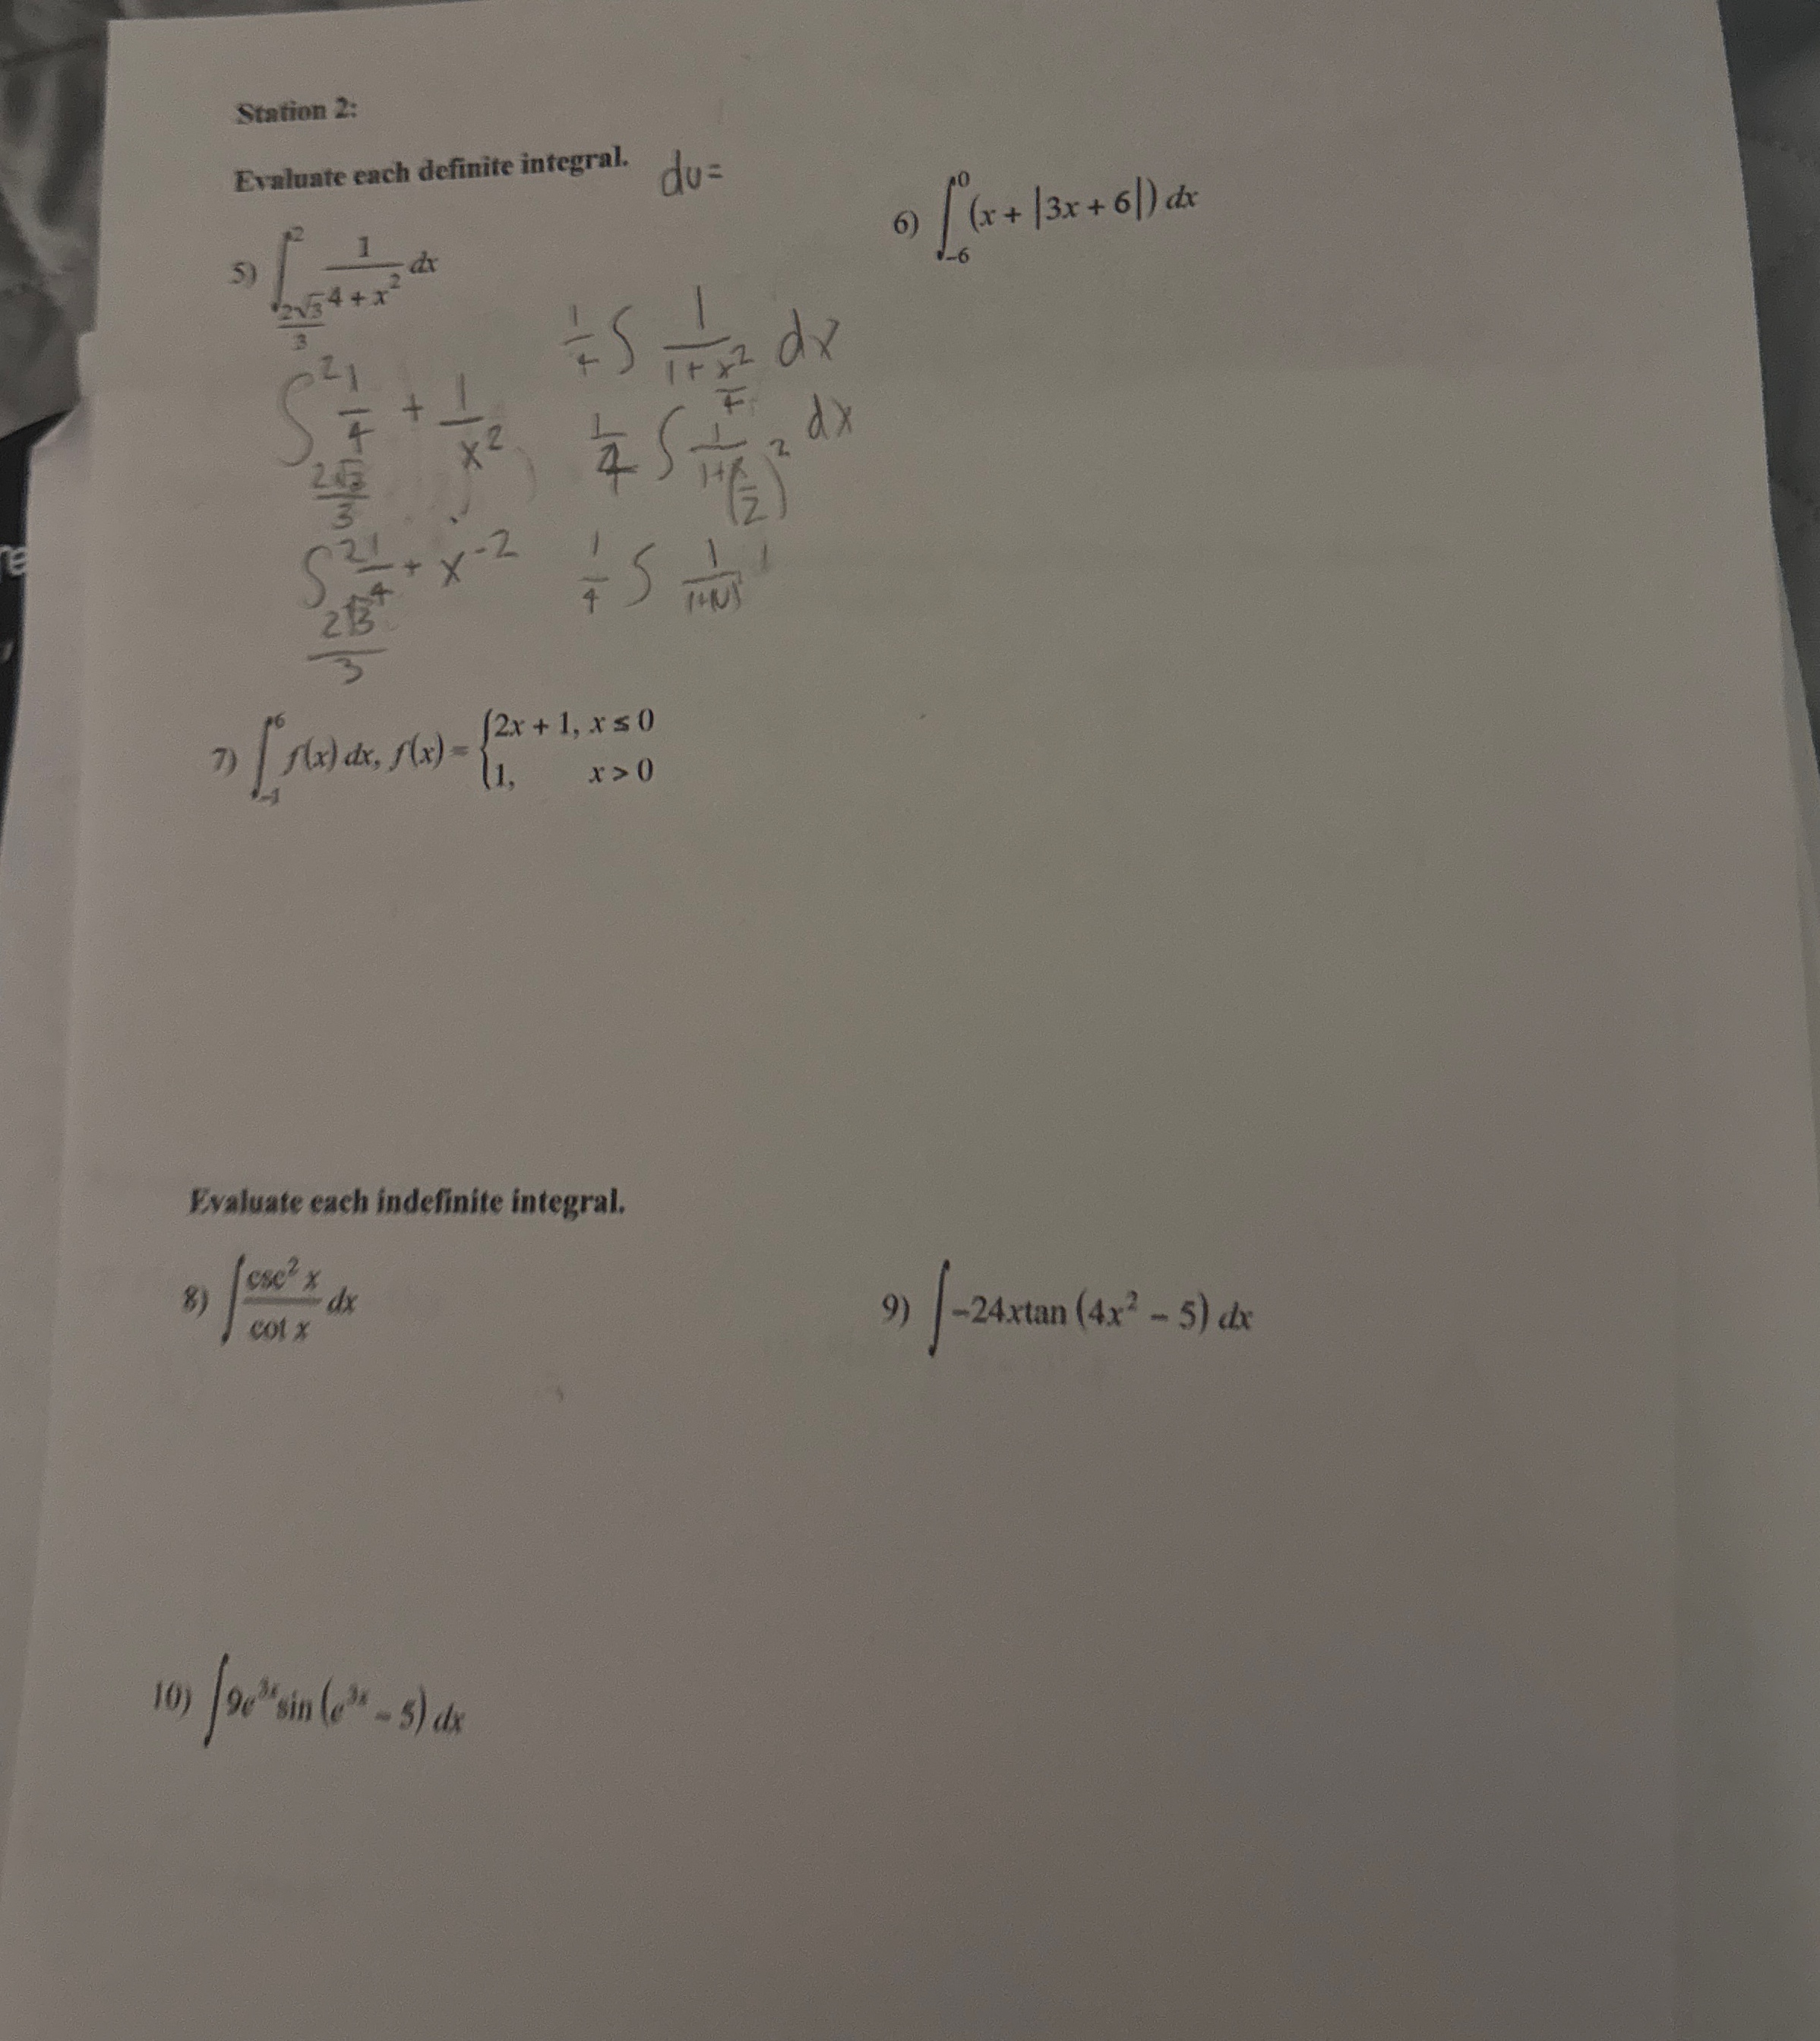 Station 2:
Evaluate each definite integral. du=
5) ∫_{2√3/3}^{2} 1/(4 + x²) dx
6) ∫_{-6}^{0} (x + |3x + 6|) dx
∫_{2√3/3}^{2} 1/4 + 1/x²
∫_{2√3/3}^{2} 1/4 + x^{-2}
1/4 ∫ 1/(1 + x²/4) dx
1/4 ∫ 1/(1 + (x/2)²) dx
1/4 ∫
7) ∫_{-1}^{6} f(x) dx, f(x) = {2x + 1, x ≤ 0
1, x > 0
Evaluate each indefinite integral.
8) ∫ csc² x / cot x dx
9) ∫ -24xtan (4x² - 5) dx
10) ∫ 9e^{3x} sin (e^{3x} - 5) dx